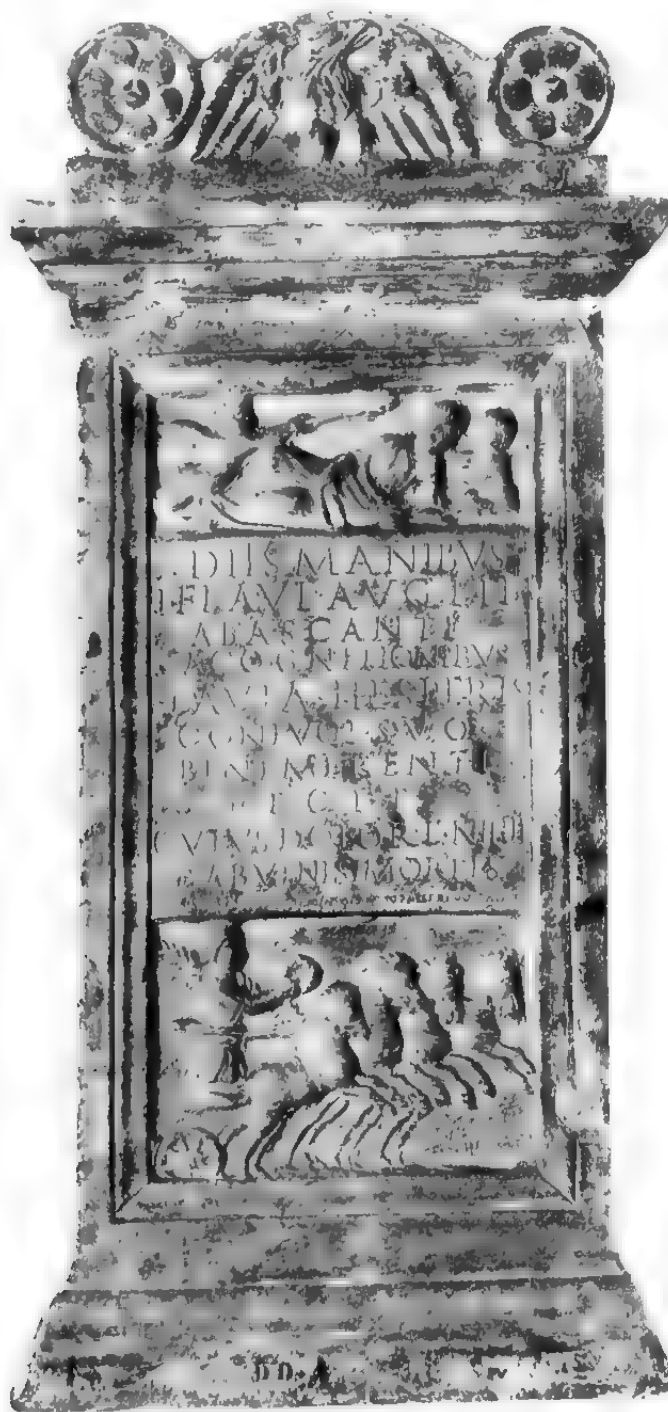 DIIS MANIBVS
T FLAVI AVG LIB
ABASCANTI
A COGNITIONIBVS
FLAVIA HESPERIS
CONIVGI SVO
BENE MERENTI
FECIT
CVIVS DOLORE NIHIL
HABVI NISI MORTIS
D D